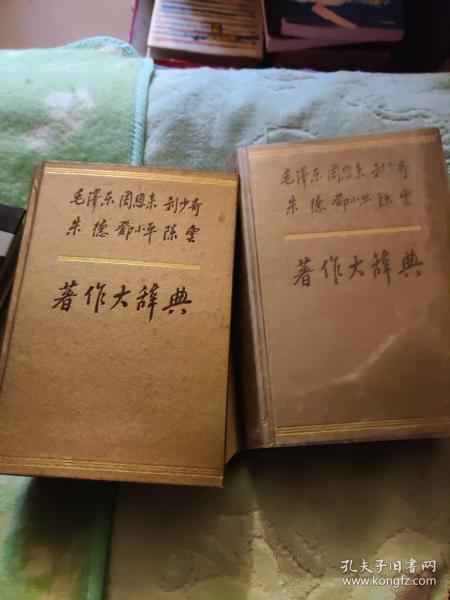 毛泽东 周恩来 刘少奇
朱德 鄧小平 陈雲
著作大辞典
毛泽东 周恩来 刘少奇
朱德 鄧小平 陈雲
著作大辞典
孔夫子旧书网
www.kongfz.com